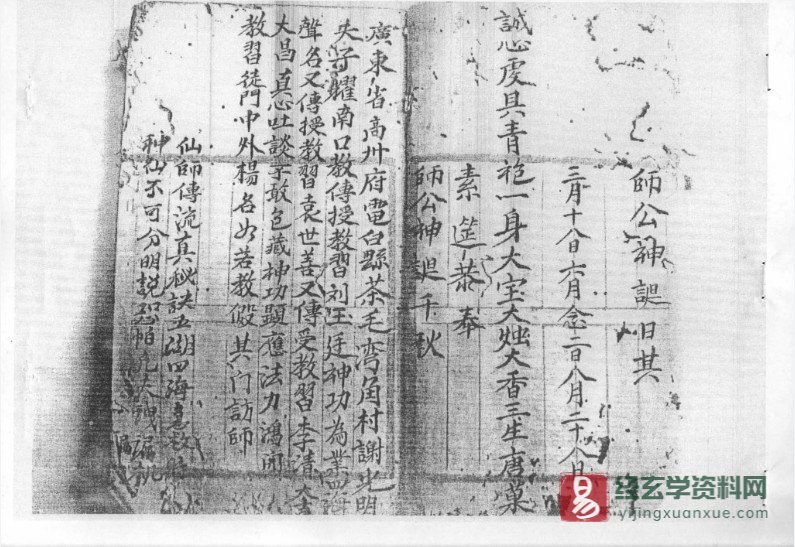 師公神誕日其
三月十八日六月念二日八月二十八日
誠心虔具青袍一身大宝大燭大香三生唐菓
素筵恭奉
師公神誕千秋
廣東省高州府電白縣茶毛湾角村謝光明
夫子耀南口教傳授教習刘玉廷神功為業四海
聲名又傳授教習袁世善又傳受教習李清
大昌真心吐談予敢包藏神功顕應法力鴻
教習徒門中外楊名如若教假其门訪師
仙師傳流真秘訣五湖四海
神仙不可分明説恐怕
易
终玄学资料网
yijingxuanxue.com